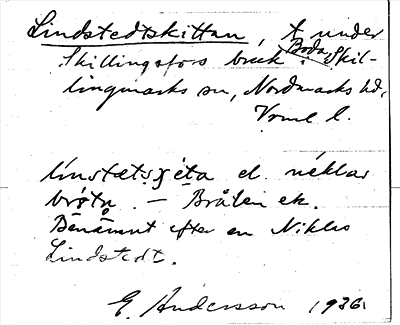 Lindstedtskittan, t under
Skillingsfors bruk Boda, Skil-
lingmarks sn, Nordmarks hd,
Vrml l.
línstætsʃéta el. néklas
brǿtn. — Bråten ek.
Benämnt efter en Niklas
Lindstedt.
E. Andersson 1936